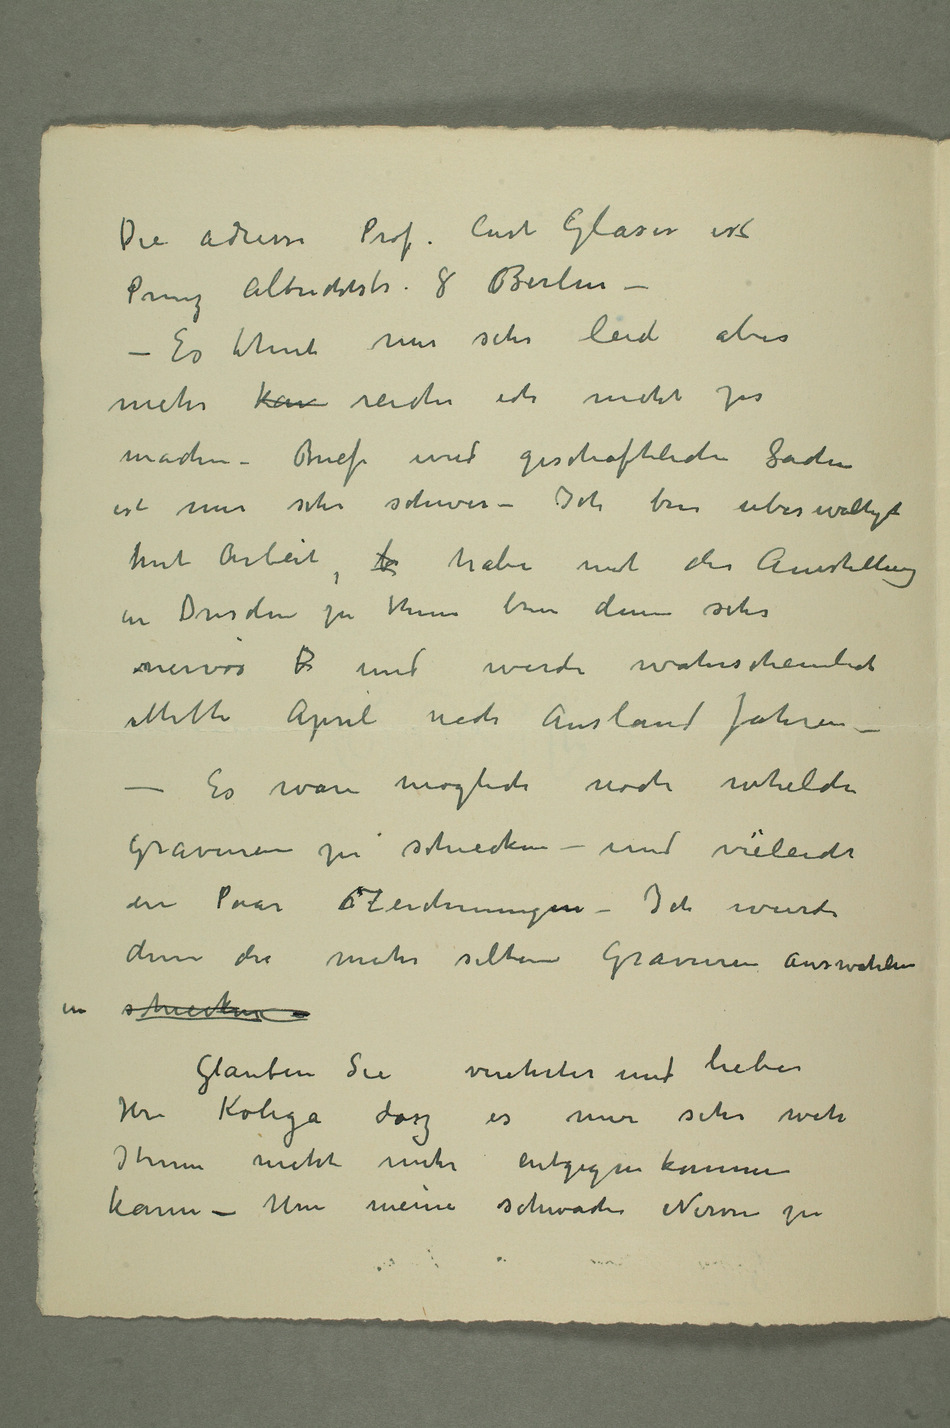 Die adresse Prof. Curt Glaser ist
Prinz Albrechtstr. 8 Berlin –
– Es thut mir sehr leid aber
mehr kan reicher ich nicht zu
machen – Briefe und geschäftliche Sachen
ist mir sehr schwer – Ich bin uberwältigt
mit Arbeit, habe mit der Ausstellung
in Dresden zu thun bin denn sehr
nervös und werde wahrscheinlich
Mitte April nach Ausland fahren –
– Es wäre möglich noch
Gravuren zu schicken – und vieleicht
ein Paar Zeichnungen – Ich wurde
denn die mehr seltene Gravuren auswählen
schicken –
Glauben Sie verehrter und lieber
Herr Kolega dasz es mir sehr weh
Ihnen nicht mehr entgegen kommen
kann – Um meine schwache Nerven zu